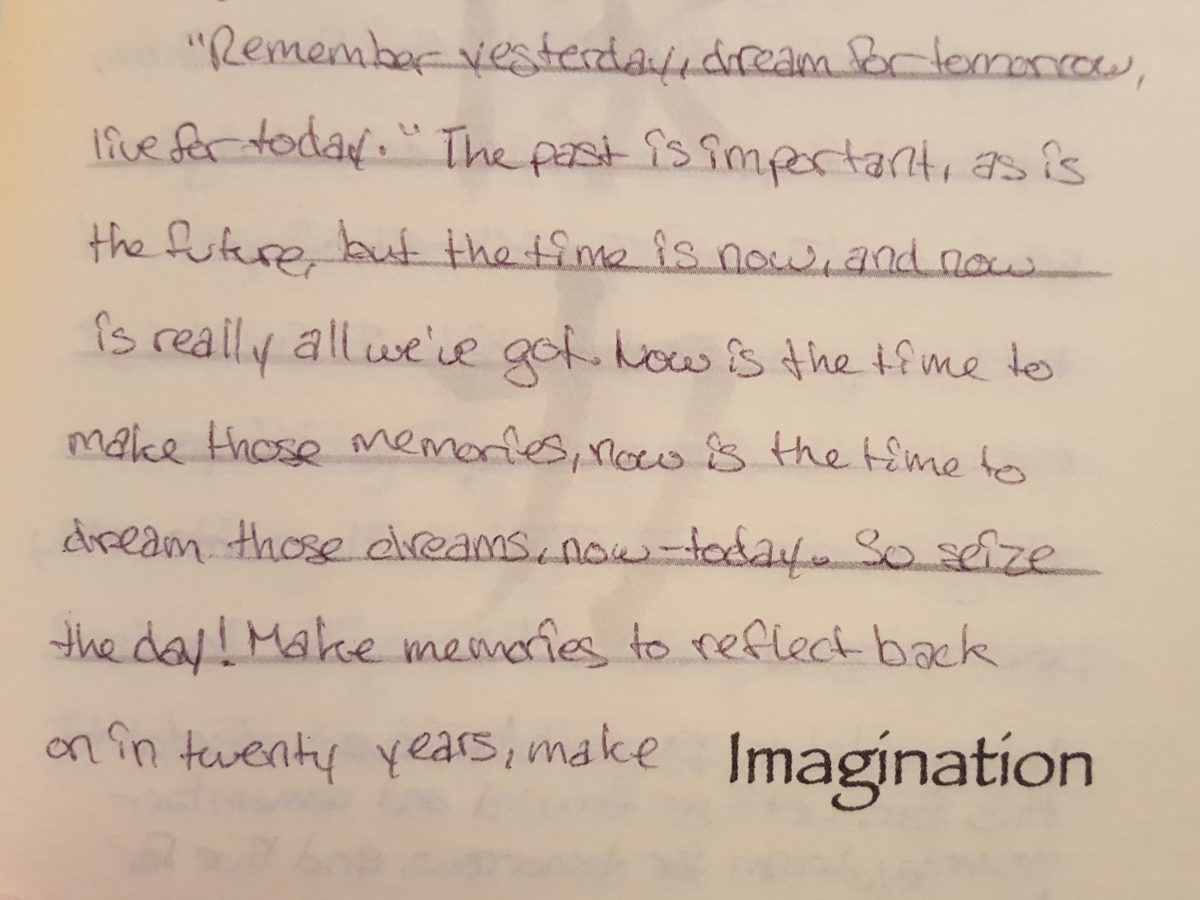 "Remember yesterday, dream for tomorrow,
live for today." The past is important, as is
the future, but the time is now, and now
is really all we've got. Now is the time to
make those memories, now is the time to
dream those dreams, now-today. So seize
the day! Make memories to reflect back
on in twenty years, make Imagination